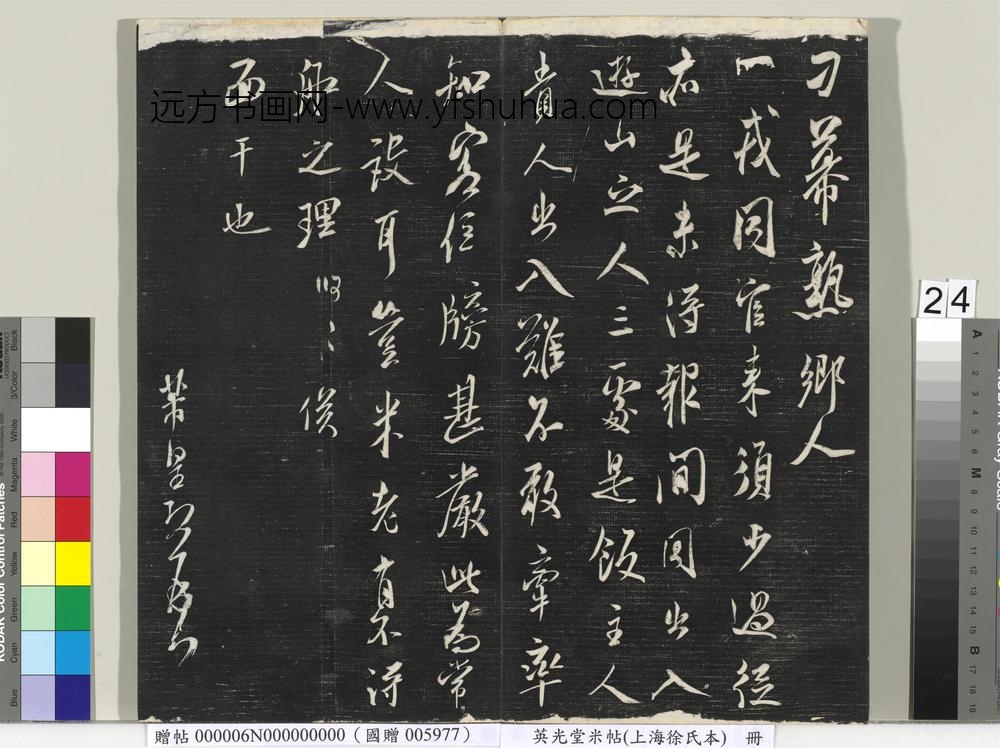 刁幕熟鄉人
一戎同官来須少過従
亦是未得報間同出入
遊山亦人三處是飯主人
貴人出入難不敢牽率
知客位牓甚嚴此為常
人設耳豈米老有不得
舟之理
面干也
芾皇恐
远方书画网-www.yfshuhua.com
24
贈帖 000006N000000000（國贈 005977）
英光堂米帖(上海徐氏本) 冊
KODAK Color Control Patches
Blue Cyan Green Yellow Red Magenta White 3/Color Black
A 1 2 3 4 5 6 M 8 9 10 11 12 13 14 15 B 17 18 19